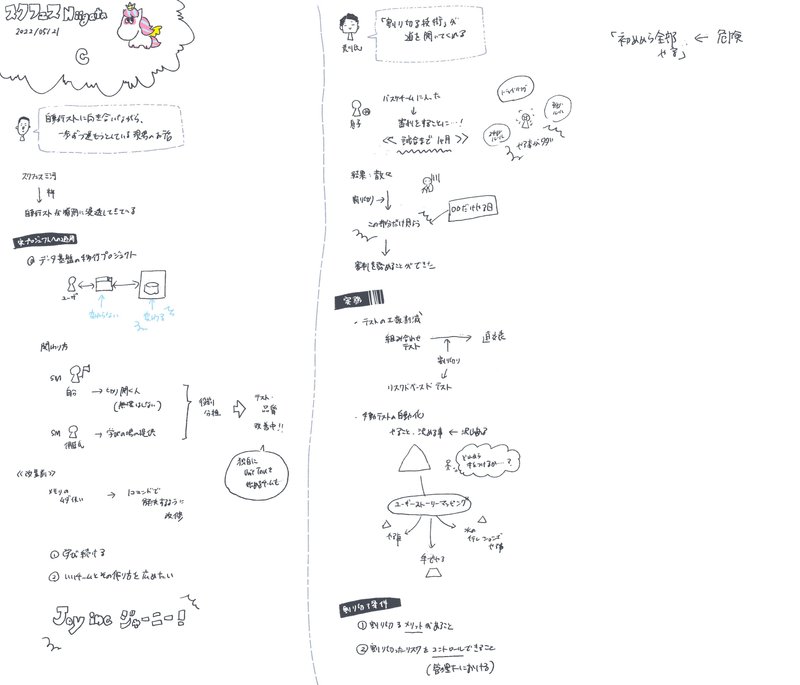 スクフェス Niigata
2022/05/21
C
自動テストに向き合いながら、
一歩ずつ進もうとしている現場のお話
スクフェス三河
自動テストが
浸透してきている
データ基盤の移行プロジェクト
ユーザ
変わらない
変わる
関わり方
SM
自分
→ 切り開く人
(無理はしない)
SM
→ 学びの場の提供
役割
分担
テスト・
品質
改善中!!
独自に
Unit Testを
始めるチームも
《改善前》
メモリの
ムダ使い
→ 1コマンドで
改修
① 学び続ける
② いいチームとその作り方を広めたい
Joy inc ジャーニー!
「割り切る技術」が
道を開いてくれる
バスケチームに入った
審判をすることに…!
《試合まで1ヶ月》
やる事が多い
結果・散々
割り切り →
この部分だけ見よう
〇〇だけやる日
審判を務めることができた
実務
・テストの工数削減
組み合わせ
テスト
直交表
割り切り
リスクベースドテスト
・手動テストの自動化
やること、決める事 ← 沢山ある
どれから
手をつけるか…?
ユーザーストーリーマッピング
やる事
手でやる
次の
イテレーションで
やる事
割り切る条件
① 割り切るメリットがあること
② 割り切ったリスクをコントロールできること
(管理下における)
「初めから全部
やる」
← 危険